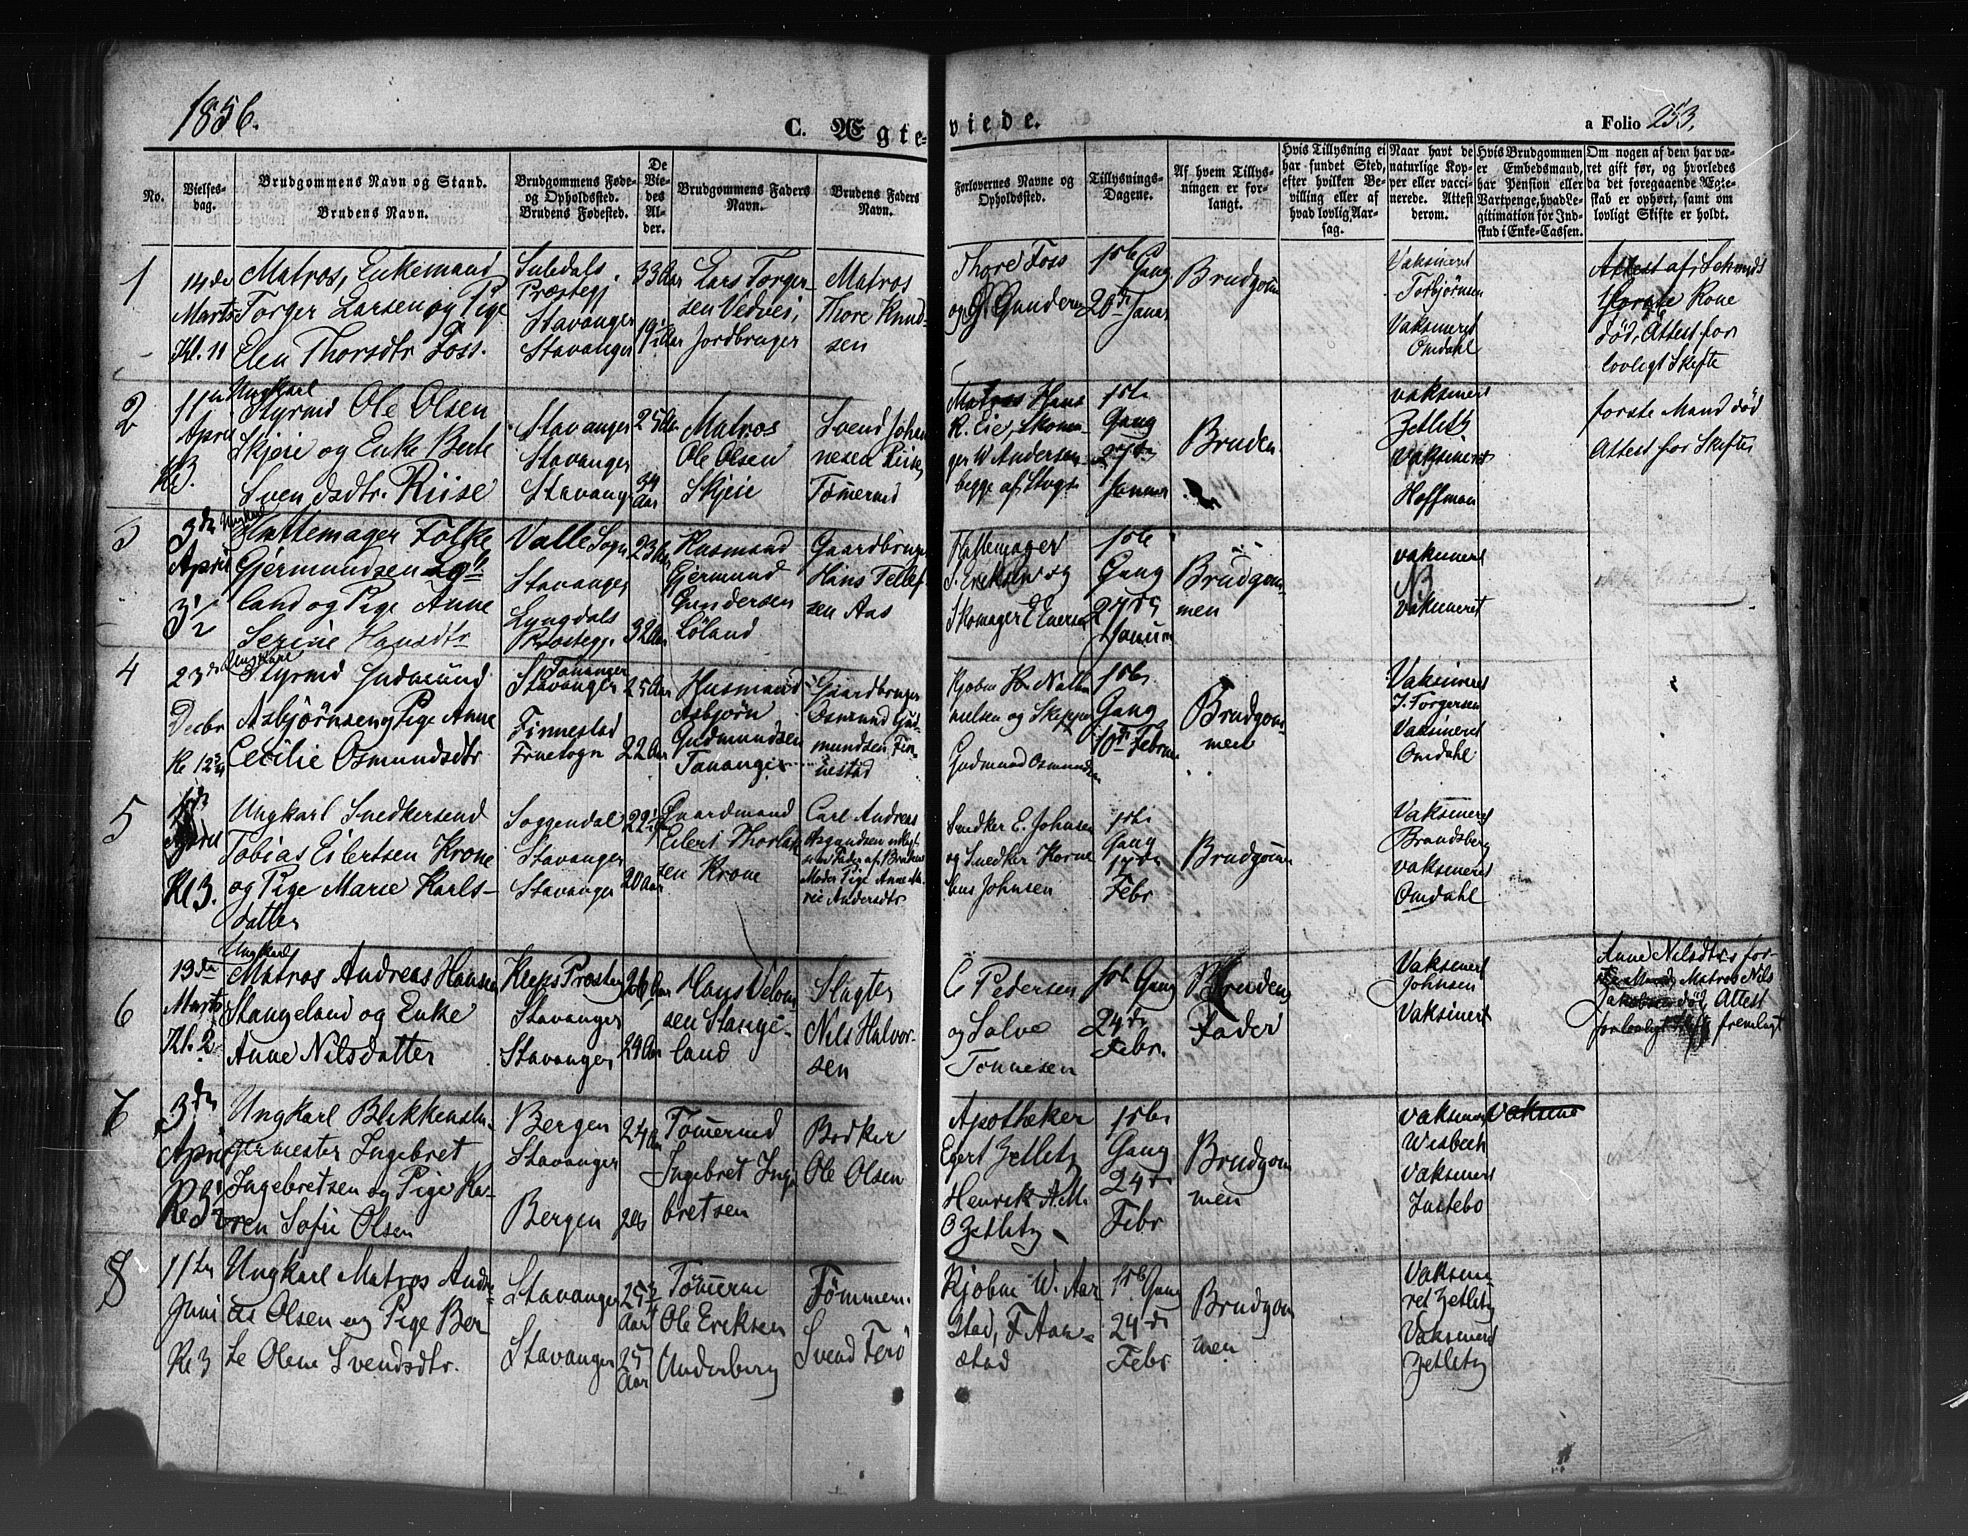 1856.
C. Ægte-
viede.
a Folio 253.
No.
Vielses-
dag.
Brudgommens Navn og Stand.
Brudens Navn.
Brudgommens Føde-
og Opholdssted.
Brudens Fødested.
De
Vie-
des
Al-
der.
Brudgommens Faders
Navn.
Brudens Faders
Navn.
Forlovernes Navne og
Opholdssted.
Tillysnings-
Dagene.
Af hvem Tillys-
ningen er for-
langt.
Hvis Tillysning ei
har fundet Sted,
efter hvilken Be-
villing eller af
hvad lovlig Aar-
sag.
Naar havt de
naturlige Kop-
per eller vacci-
nerede. Attest
derom.
Hvis Brudgommen
er Embedsmand,
har Pension eller
Vartpenge, hvad Le-
gitimation for Ind-
skud i Enke-Cassen.
Om nogen af dem har væ-
ret gift før, og hvorledes
da det foregaaende Ægte-
skab er ophørt, samt om
lovligt Skifte er holdt.
1
14de
Marts
Kl. 11
Matros, Enkemand
Torger Larsen og Pige
Elen Thorsdtr Foss.
Suledals
Præstegj
Stavanger
Stavanger
33 Aar
19½ Aar
Lars Torger-
sen Vedvei,
Jordbruger
Matros
Thore Knud-
sen
Thore Foss
og G. Gundersen
1ste Gang
20de Januar
Brudgom
Vaksineret
Torbjörnsen
Vaksineret
Omdahl
Attest af Schmidt
første Kone
död, Attest for
lovligt Skifte
2
11te
April
Kl 3.
Ungkarl
Styrmd Ole Olsen
Skjeie og Enke Berte
Svendsdtr. Riise
Stavanger
Stavanger
Stavang
25 Aar
34
Aar
Matros
Ole Olsen
Skjeie
Svend Johan
nesen Riise,
Tömermd
Matros Hans
R. Eie, Skoma-
ger W Andersen
begge af Stvgr
1ste
Gang
27de
Januar
Bruden
vaksineret
Zetlitz
Vaksineret
Hoffman
forste Mand död
Attest for Skifte
3
3de
April
3½
Ungkarl
Hattemager Folke
Gjermundsen Løh-
land og Pige Anne
Serine Hansdtr
Valle Sogn
Stavanger
Lyngdals
Præstegj.
23 Aar
32 Aar
Husmand
Gjermund
Gundersen
Löland
Gaardbruger
Hans Tellef
sen Aas
Hattemager
S. Eriksen og
Skomager E Iversen
1ste
Gang
27de
Januar
Brudgom-
men
vaksineret
NB
vaksineret
4
23de
Decbr
Kl 12¾
Ungkarl
Styrmd Gudmund
Asbjörnsen og Pige Anne
Cecilie Osmundsdtr
Tananger
Stavanger
Finnestad
Fruesogn
25 Aar
22 Aar
Husmand
Asbjörn
Gudmundsen
Tananger
Gaardbruger
Osmund Gud-
mundsen Fin-
nestad
Kjöbm H. Natha
nielsen og Skipper
Gudmund Osmundsen
1ste
Gang
10de Februar
Brudgom-
men
Vaksineret
J. Torgersen
Vaksineret
Omdahl
5
April
Kl 3.
Ungkarl Snedkersvend
Tobias Eilertsen Krone
og Pige Marie Karls-
datter
Soggendal
Stavanger
Stavanger
22½
20 Aar
Gaardmand
Eilert Thorlak
sen Krone
Carl Andreas
Asgundsen
Fader af Brudens
Moder Pige Anne Ma-
rie Andersdtr
Snedker E. Johnsen
og Snedker Korne
lius Johnsen
1ste
Gang
17de
Febr
Brudgom
Vaksineret
Brandsberg
vaksineret
Omdahl
6
19de
Marts
Kl. 2
Ungkarl
Matros Andreas Hansen
Stangeland og Enke
Anne Nilsdatter
Kleps Præsteg
Stavanger
Stavanger
26 Aar
29 Aar
Hans Velom
sen Stange-
land
Slagter
Nils Halvor-
sen
C Pedersen
og Salve
Tonnesen
1ste Gang
24de
Febr.
Brudens
Fader
Vaksineret
Johnsen
Vaksineret
Anne Nilsdtrs for-
Matros Nils
Jakobsen död, Attest
for lovligt Skifte fremlagt
7
3de
April
Kl 3½
Ungkarl Blikkensla-
germester Ingebret
Ingebretsen og Pige Ka-
ren Sofie Olsen
Bergen
Stavanger
Bergen
24 Aar
26
Tömermd
Ingebret Inge
bretsen
Bødker
Ole Olsen
Apotheker
Egert Zetlitz
Henrik A.M.
O Zetlitz
1ste
Gang
24de
Febr
Brudgom
men
vaksineret
Wisbech
Vaksineret
Justebo
Vaksine
8
11te
Juni
Kl 3
Ungkarl Matros Andre-
as Olsen og Pige Ber-
te Olene Svendsdtr.
Stavanger
Stavanger
25¾
Aar
25
Aar
Tömerm
Ole Eriksen
Underberg
Tömmerm.
Svend Terö
Kjöbm W. Aar-
stad, F Aar-
stad
1ste Gang
24de
Febr
Brudgom
men
Vaksine-
ret Zetlitz
Vaksineret
Zetlitz